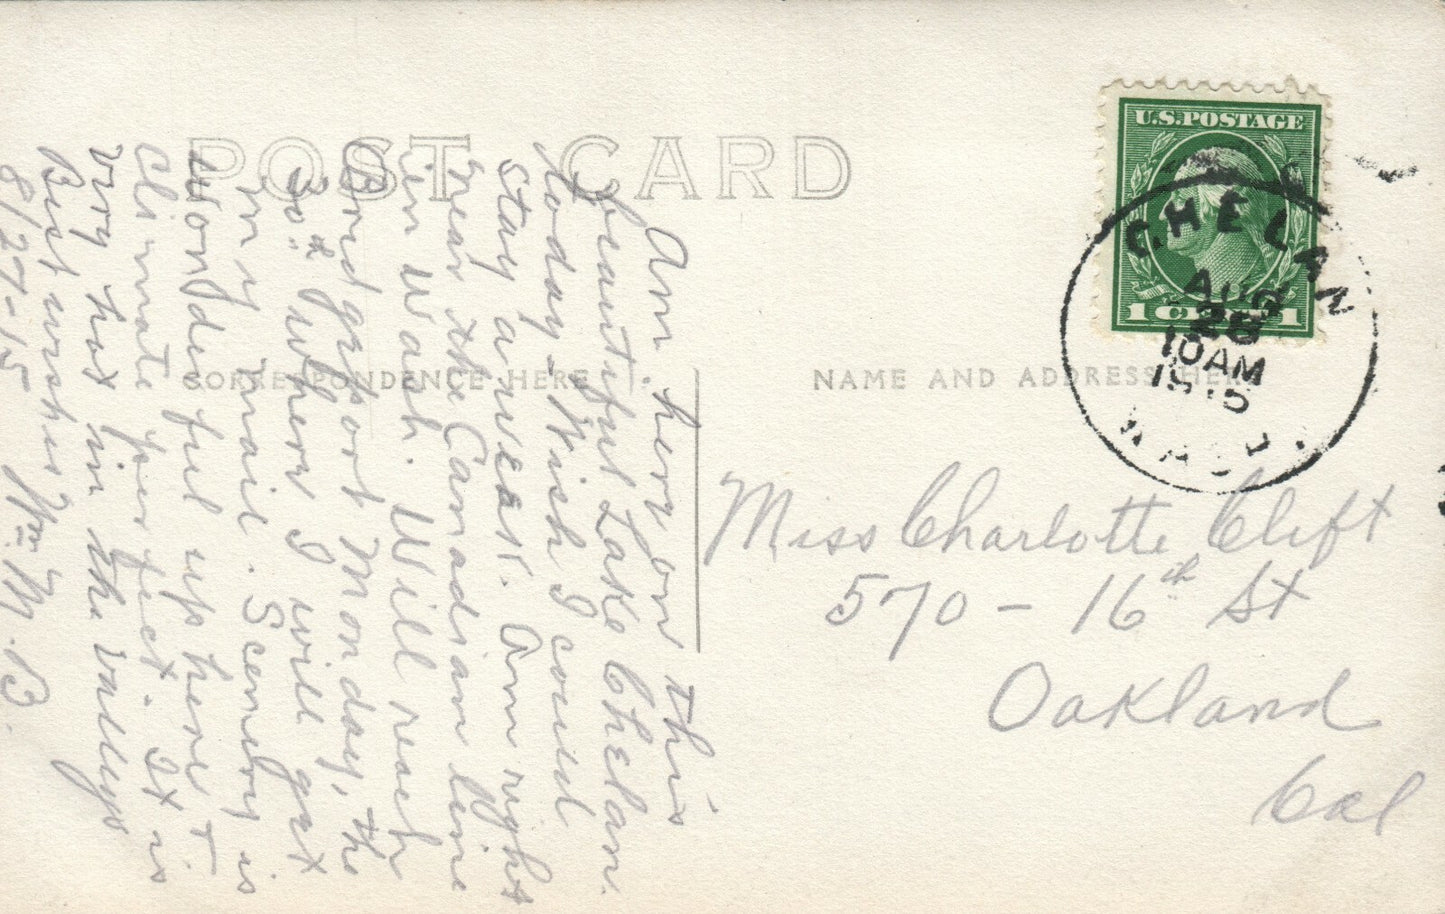 POST CARD
CORRESPONDENCE HERE
NAME AND ADDRESS HERE
U.S. POSTAGE
1 CENT 1
CHELAN
AUG
28
10 AM
1915
WASH.
Am here on this
beautiful Lake Chelan.
today - Wish I could
stay a week. Am right
near the Canadian line
in Wash. Will reach
Bridgeport Monday, the
30th where I will get
my mail. Scenery is
wonderful up here &
climate perfect. It is
very hot in the valleys
Best wishes Wm. M. B.
8/27-15
Miss Charlotte Clift
570 - 16th St
Oakland
Cal